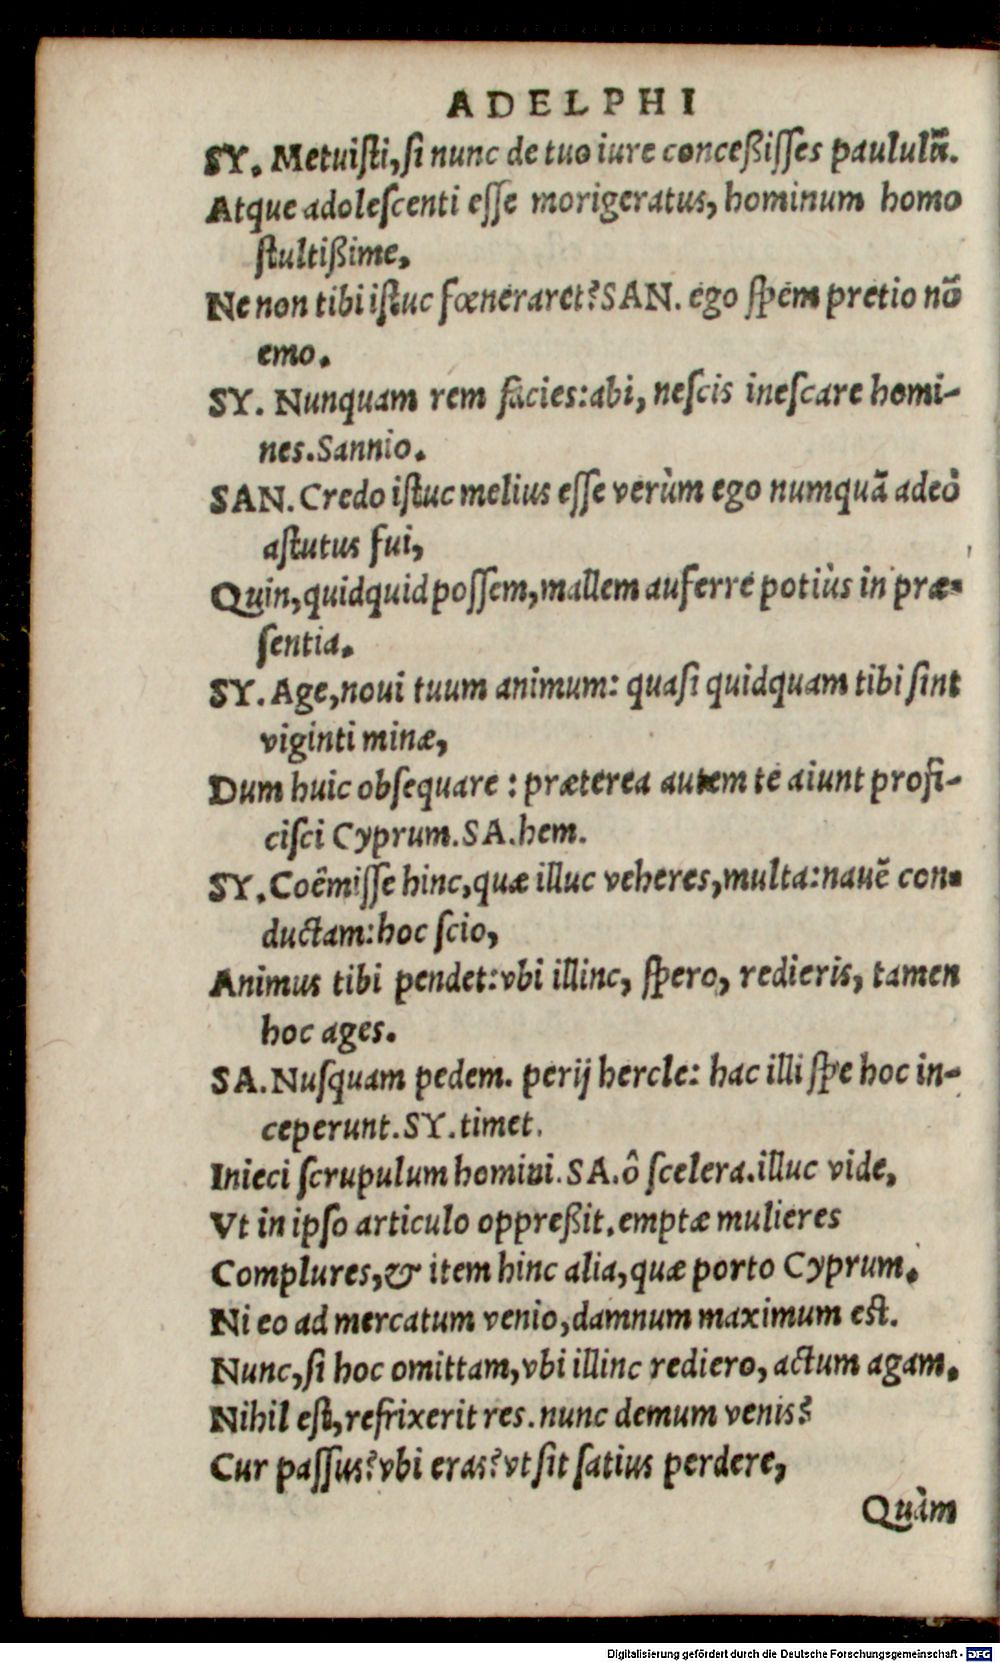 ADELPHI
SY. Metuiſti, ſi nunc de tuo iure conceßiſſes paululū.
Atque adoleſcenti eſſe morigeratus, hominum homo
ſtultißime,
Ne non tibi iſtuc fœneraret? SAN. ego ſpem pretio nō
emo.
SY. Nunquam rem facies: abi, neſcis ineſcare homi-
nes. Sannio.
SAN. Credo iſtuc melius eſſe verùm ego numquā adeò
aſtutus fui,
Quin, quidquid poſſem, mallem auferre potiùs in præ-
ſentia.
SY. Age, noui tuum animum: quaſi quidquam tibi ſint
viginti minæ,
Dum huic obſequare : præterea autem te aiunt profi-
ciſci Cyprum. SA. hem.
SY. Coëmiſſe hinc, quæ illuc veheres, multa: nauē con-
ductam: hoc ſcio,
Animus tibi pendet: vbi illinc, ſpero, redieris, tamen
hoc ages.
SA. Nuſquam pedem. perij hercle: hac illi ſpe hoc in-
ceperunt. SY. timet.
Inieci ſcrupulum homini. SA. ô ſcelera. illuc vide,
Vt in ipſo articulo oppreßit. emptæ mulieres
Complures, & item hinc alia, quæ porto Cyprum.
Ni eo ad mercatum venio, damnum maximum eſt.
Nunc, ſi hoc omittam, vbi illinc rediero, actum agam.
Nihil eſt, refrixerit res. nunc demum venis?
Cur paſſus? vbi eras? vt ſit ſatius perdere,
Quàm
Digitalisierung gefördert durch die Deutsche Forschungsgemeinschaft - DFG